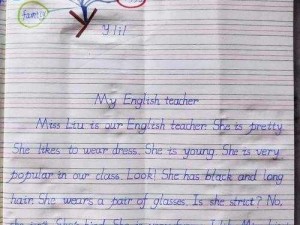 family
My English teacher
Miss Liu is our English teacher. She is pretty.
She likes to wear dress. She is young. She is very
popular in our class. Look! She has black and long
hair. She wears a pair of glasses. Is she strict? No,